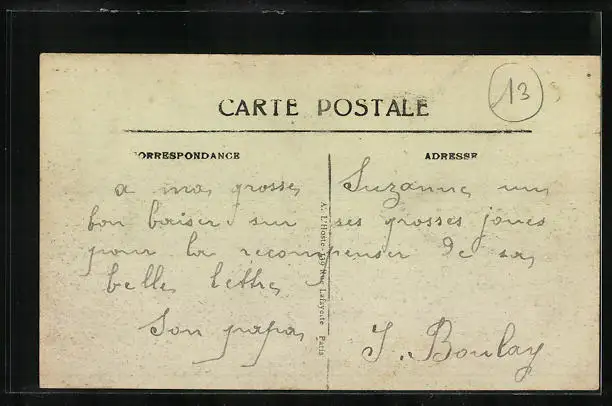 13
CARTE POSTALE
CORRESPONDANCE
ADRESSE
a ma grosse Suzanne un
bon baiser sur ses grosses joues
pour la recompenser de sa
belle lettre
Son papa J. Boulay
A. L'Hoste Rue Lafayette Paris